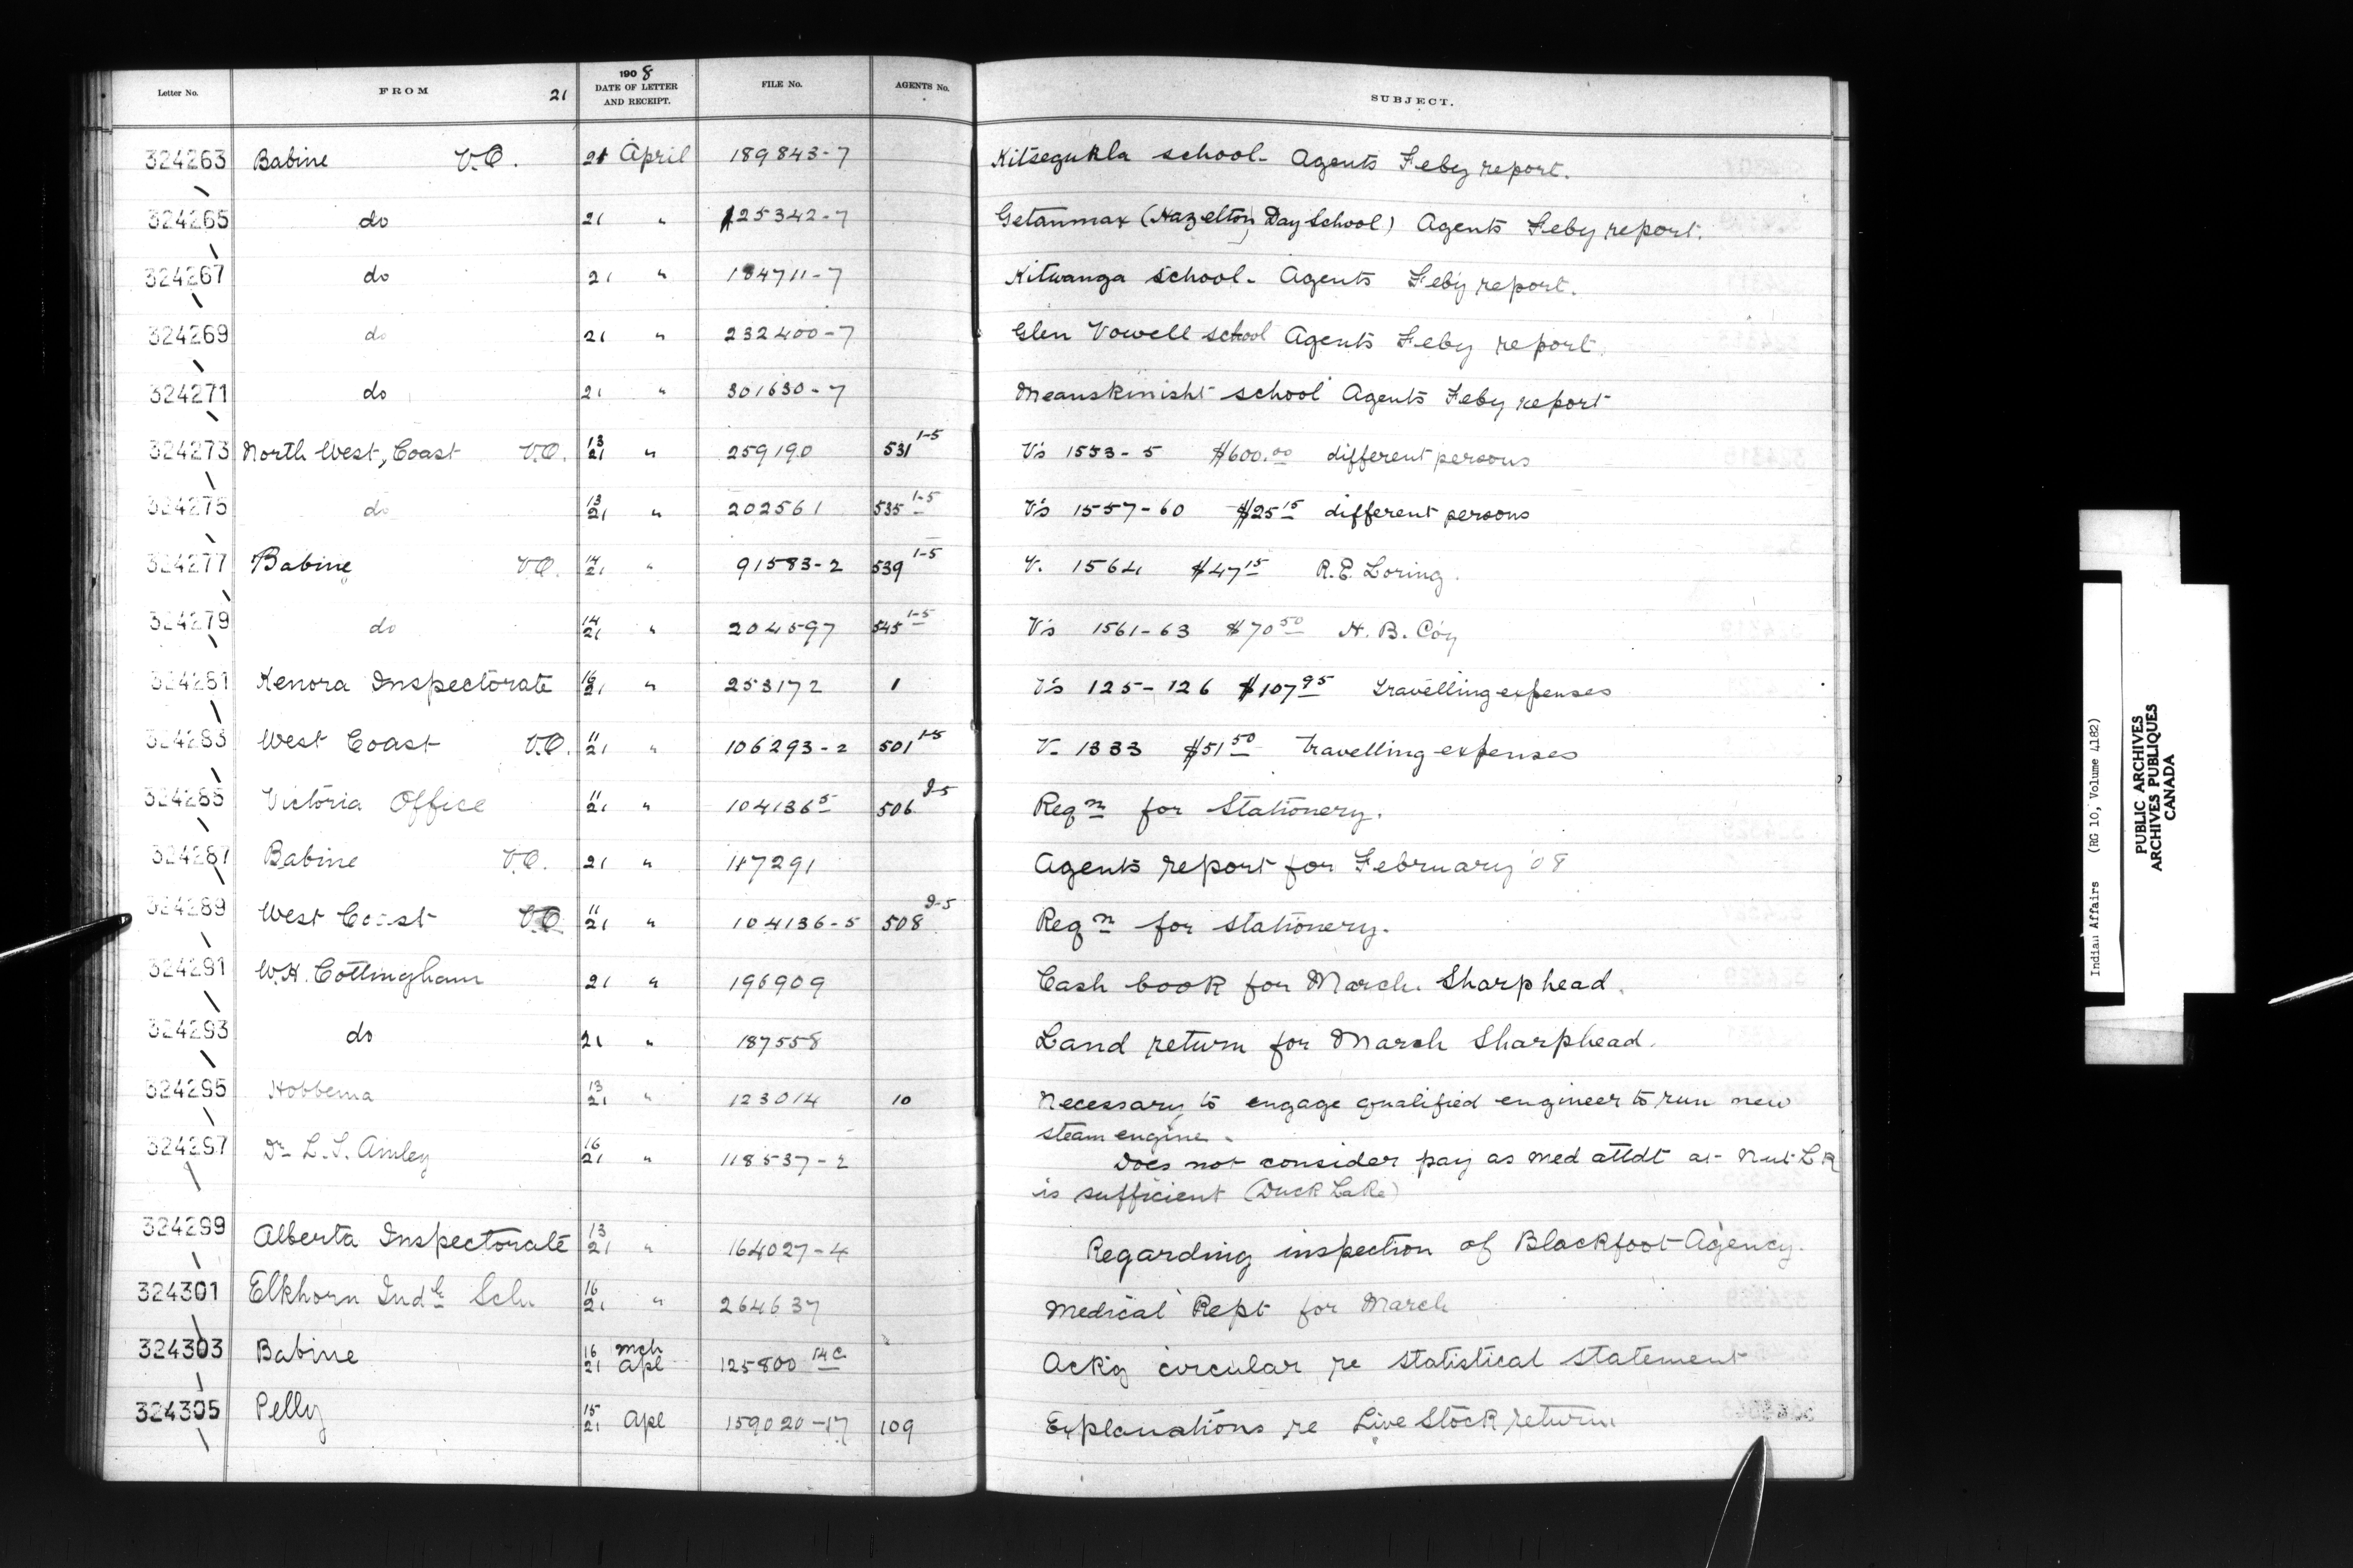 Letter No. FROM 21 1908 DATE OF LETTER AND RECEIPT. FILE No. AGENTS No. SUBJECT.
324263 Babine V.O. 21 April 189843-7 Kitsegukla school- Agents Feby report.
324265 do 21 " 125342-7 Getanmax (Hazelton Day School) Agents Feby report.
324267 do 21 " 184711-7 Kitwanga School- Agents Feby report.
324269 do 21 " 232400-7 Glen Vowell school Agents Feby report.
324271 do 21 " 301630-7 Meanskinisht school Agents Feby report
324273 North West, Coast V.O. 13/21 " 259190 531 1-5 V's 1553-5 $600.00 different persons
324275 do 13/21 " 202561 535 1-5 V's 1557-60 $25 15 different persons
324277 Babine V.O. 14/21 " 91583-2 539 1-5 V. 1564 $47 15 R.E. Loring.
324279 do 14/21 " 204597 545 1-5 V's 1561-63 $70 50 H. B. Coy
324281 Kenora Inspectorate 16/21 " 253172 1 V's 125-126 $107 95 travelling expenses
324283 West Coast V.O. 11/21 " 106293-2 501 1-5 V. 1333 $51 50 Travelling expenses
324285 Victoria Office 11/21 " 104136 5 506 2-5 Reqn for Stationery.
324287 Babine V.O. 21 " 117291 Agents report for February '08
324289 West Coast V.O. 11/21 " 104136-5 508 2-5 Reqn for stationery.
324291 W.H. Cottingham 21 " 196909 Cash book for March. Sharphead.
324293 do 21 " 187558 Land return for March Sharphead.
324295 Hobbema 13/21 " 123014 10 Necessary to engage qualified engineer to run new
steam engine.
324297 Dr L. S. Amley 16/21 " 118537-2 Does not consider pay as med attdt at Nut L R
is sufficient (Duck Lake)
324299 Alberta Inspectorate 13/21 " 164027-4 Regarding inspection of Blackfoot Agency.
324301 Elkhorn Indl Sch 16/21 " 264637 Medical Rept for March
324303 Babine 16 Mch 21 Apl 125800 14C Ackg circular re statistical statement
324305 Pelly 15/21 Apl 159020-17 109 Explanations re Live Stock return
Indian Affairs (RG 10, Volume 4182)
PUBLIC ARCHIVES
ARCHIVES PUBLIQUES
CANADA